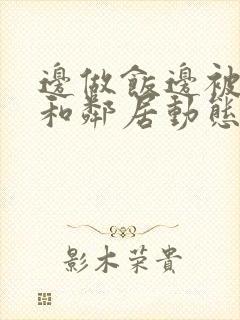 邊做飯邊被
和鄰居動態
影木荣貴